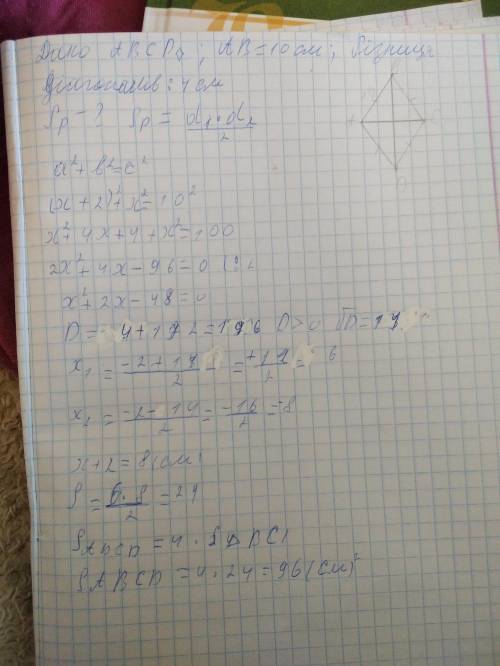 Дано ABCD ; AB=10см; Різниця
діагоналів: 4 см
Sр - ? Sр = d₁·d₂/2
a²+b²=c²
(x+2)²+x²=10²
x²+4x+4+x²=100
2x²+4x-96=0 |:2
x²+2x-48=0
D=4+192=196 D>0 √D=14
x₁ = -2+14/2 = +12/2 = 6
x₂ = -2-14/2 = -16/2 = -8
x+2=8(см)
S = 6·8/2 = 24
S ABCD = 4·SΔ
S ABCD = 4·24=96(см)²